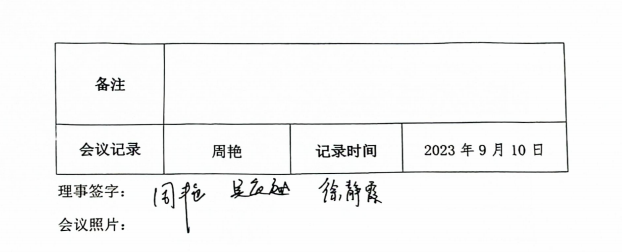 备注
会议记录 周艳 记录时间 2023 年 9 月 10 日
理事签字： 周艳 徐静霞
会议照片：